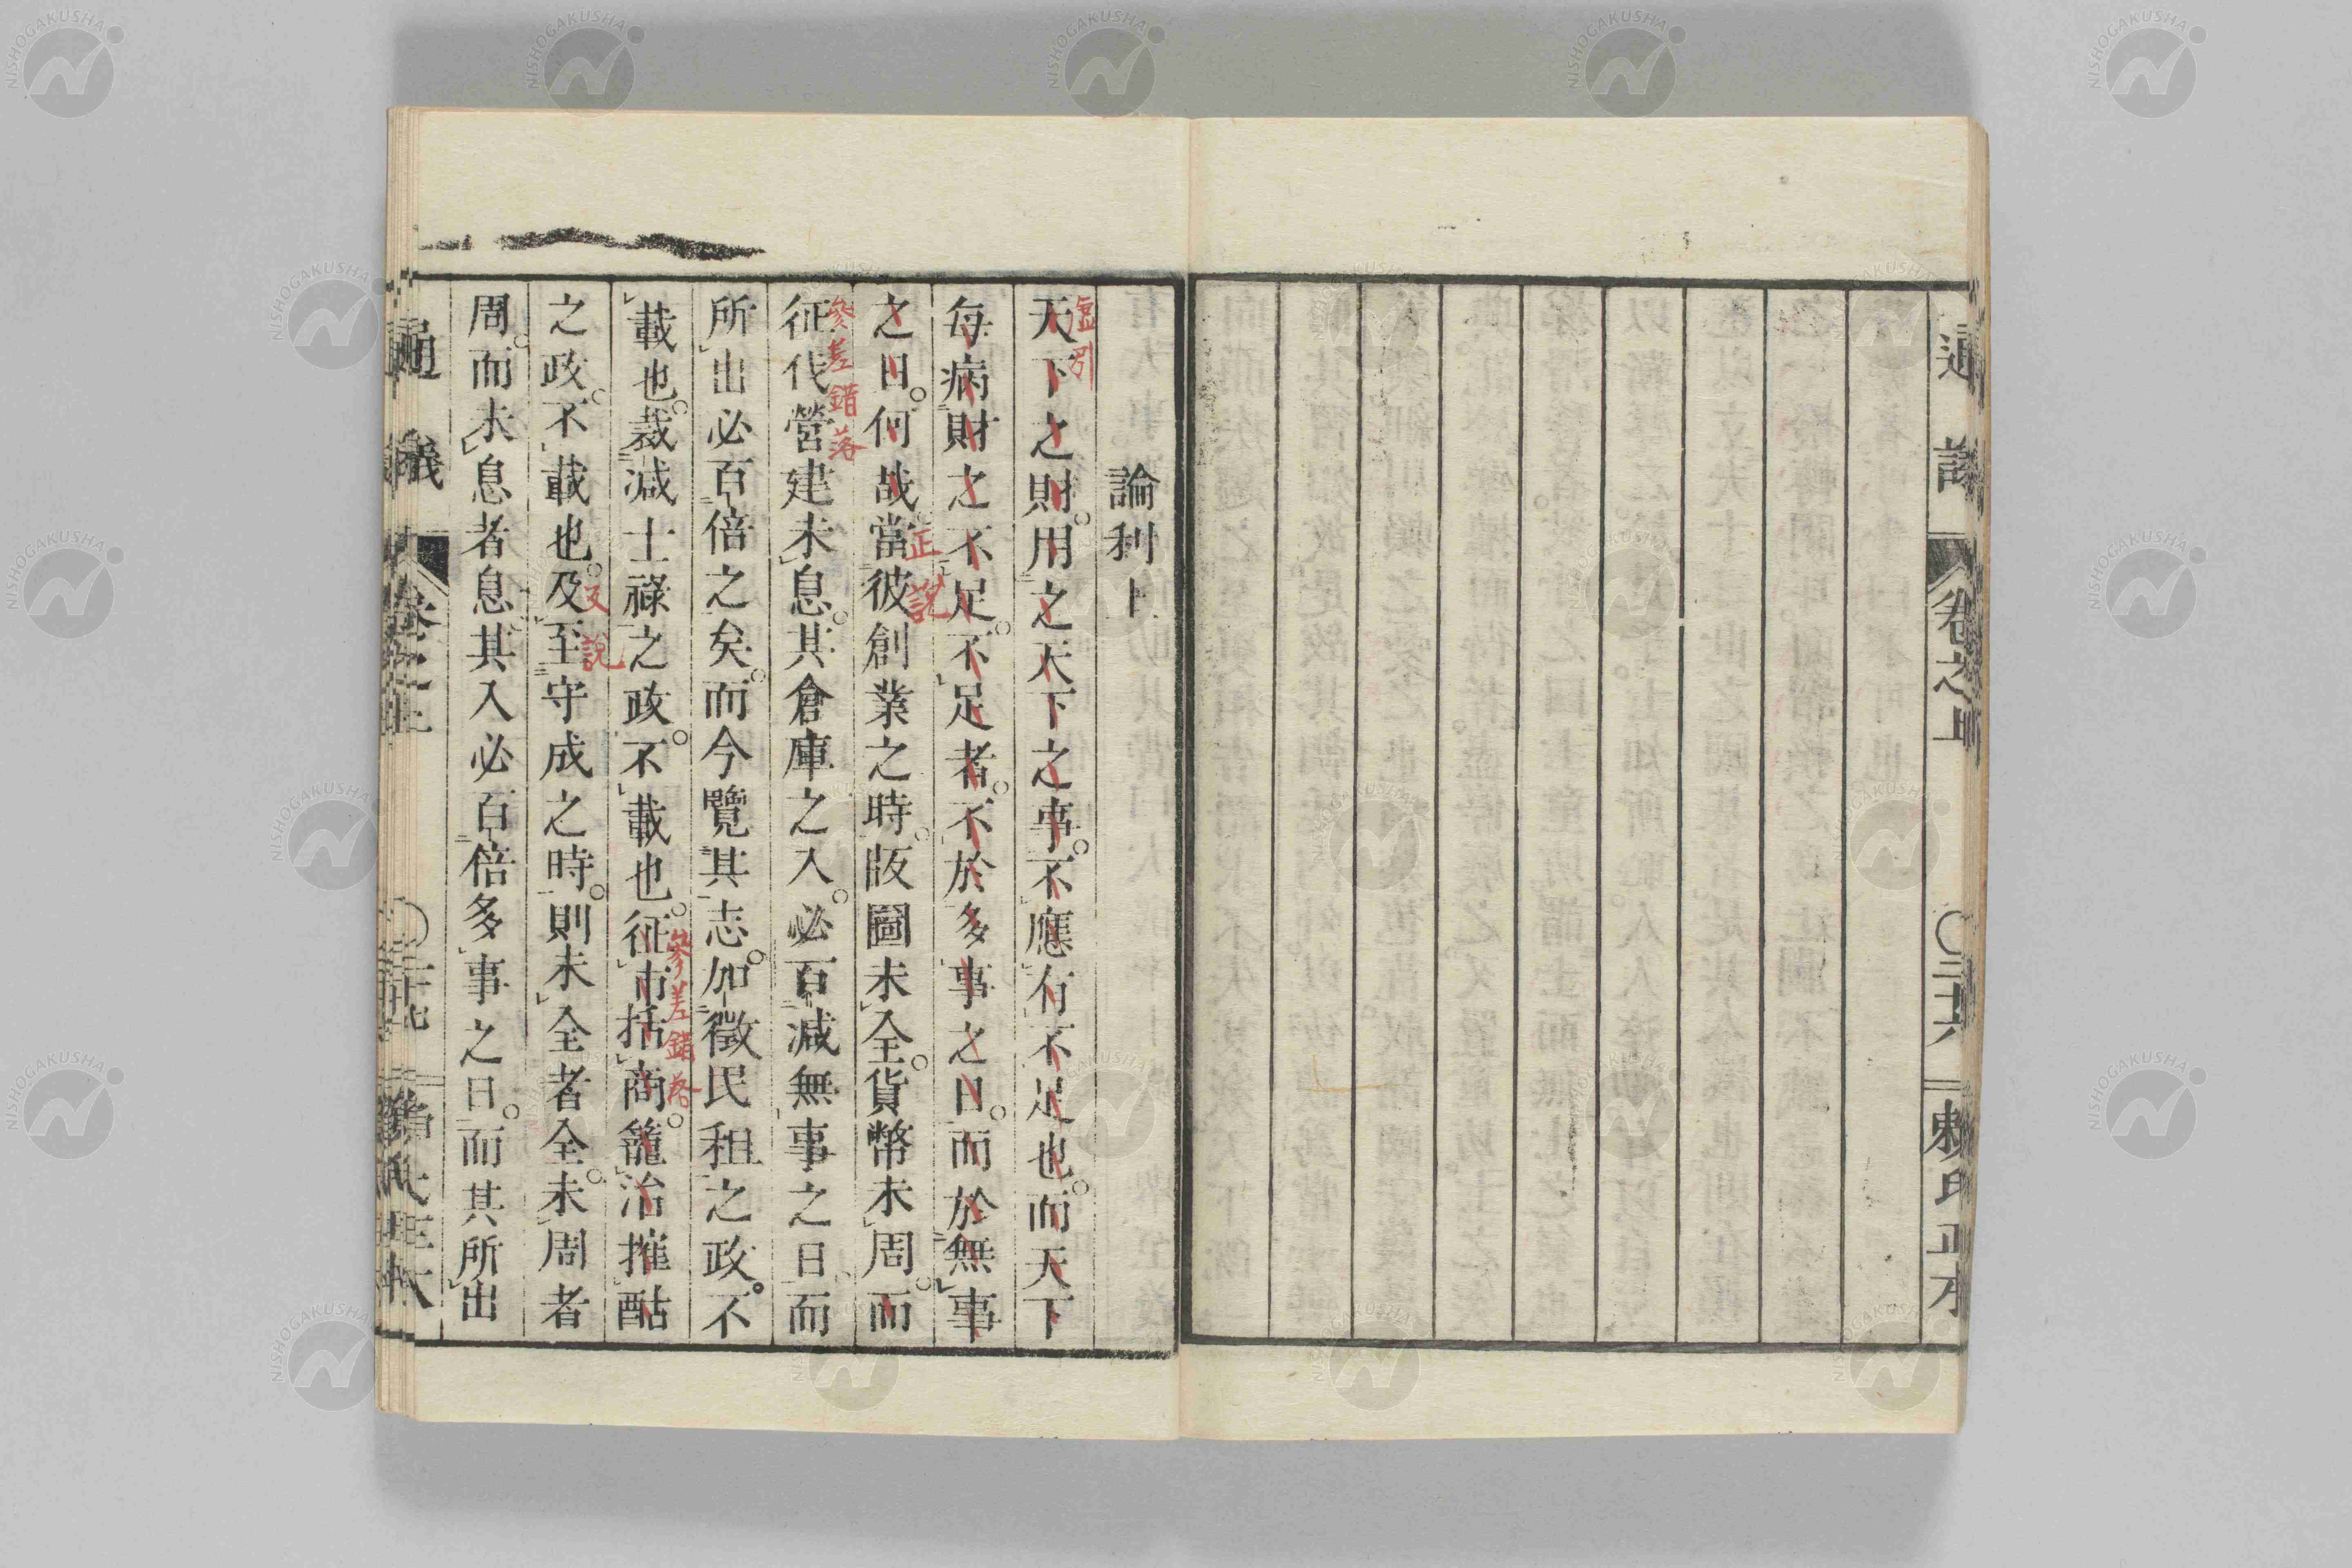 通議 卷之上 〇二十六 賴氏正本
論利上
天下之財。用之天下之事。不應有不足也。而天下
每病財之不足。不足者。不於多事之日。而於無事
之日。何哉。當彼創業之時。版圖未全。貨幣未周。而
征伐營建未息。其倉庫之入。必百減無事之日。而
所出必百倍之矣。而今覽其志。加徵民租之政。不
載也。裁減士祿之政。不載也。征市括商。籠冶搉酤
之政。不載也。及至守成之時。則未全者全。未周者
周。而未息者息。其入必百倍多事之日。而其所出
虛引
正說
參差錯落
反說
參差錯落
通議 卷之上
NISHOGAKUSHA